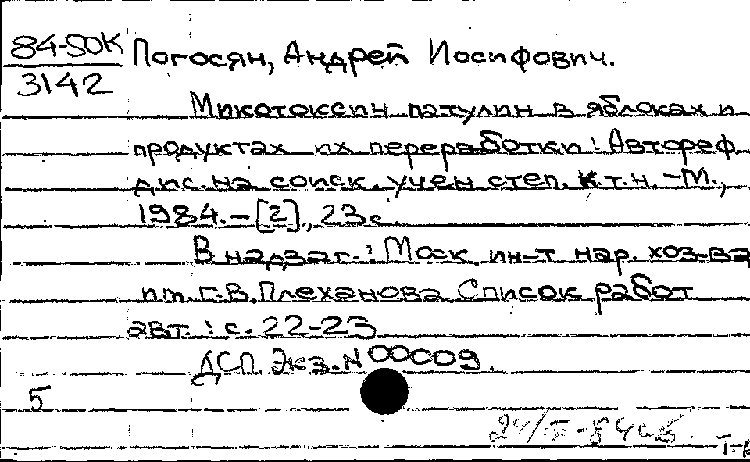 84-SOK
3142
Погосян, Андрей Иосифович.
Микотоксин патулин в яблоках и
продуктах их переработки: Автореф.
дис. на соиск. учен степ. к.т.н. -М.,
1984.-[2], 23с.
В надзаг.: Моск ин-т нар. хоз-ва
им. Г.В. Плеханова Список работ
авт.: с. 22-23
ДСП. Экз. N 00009.
5